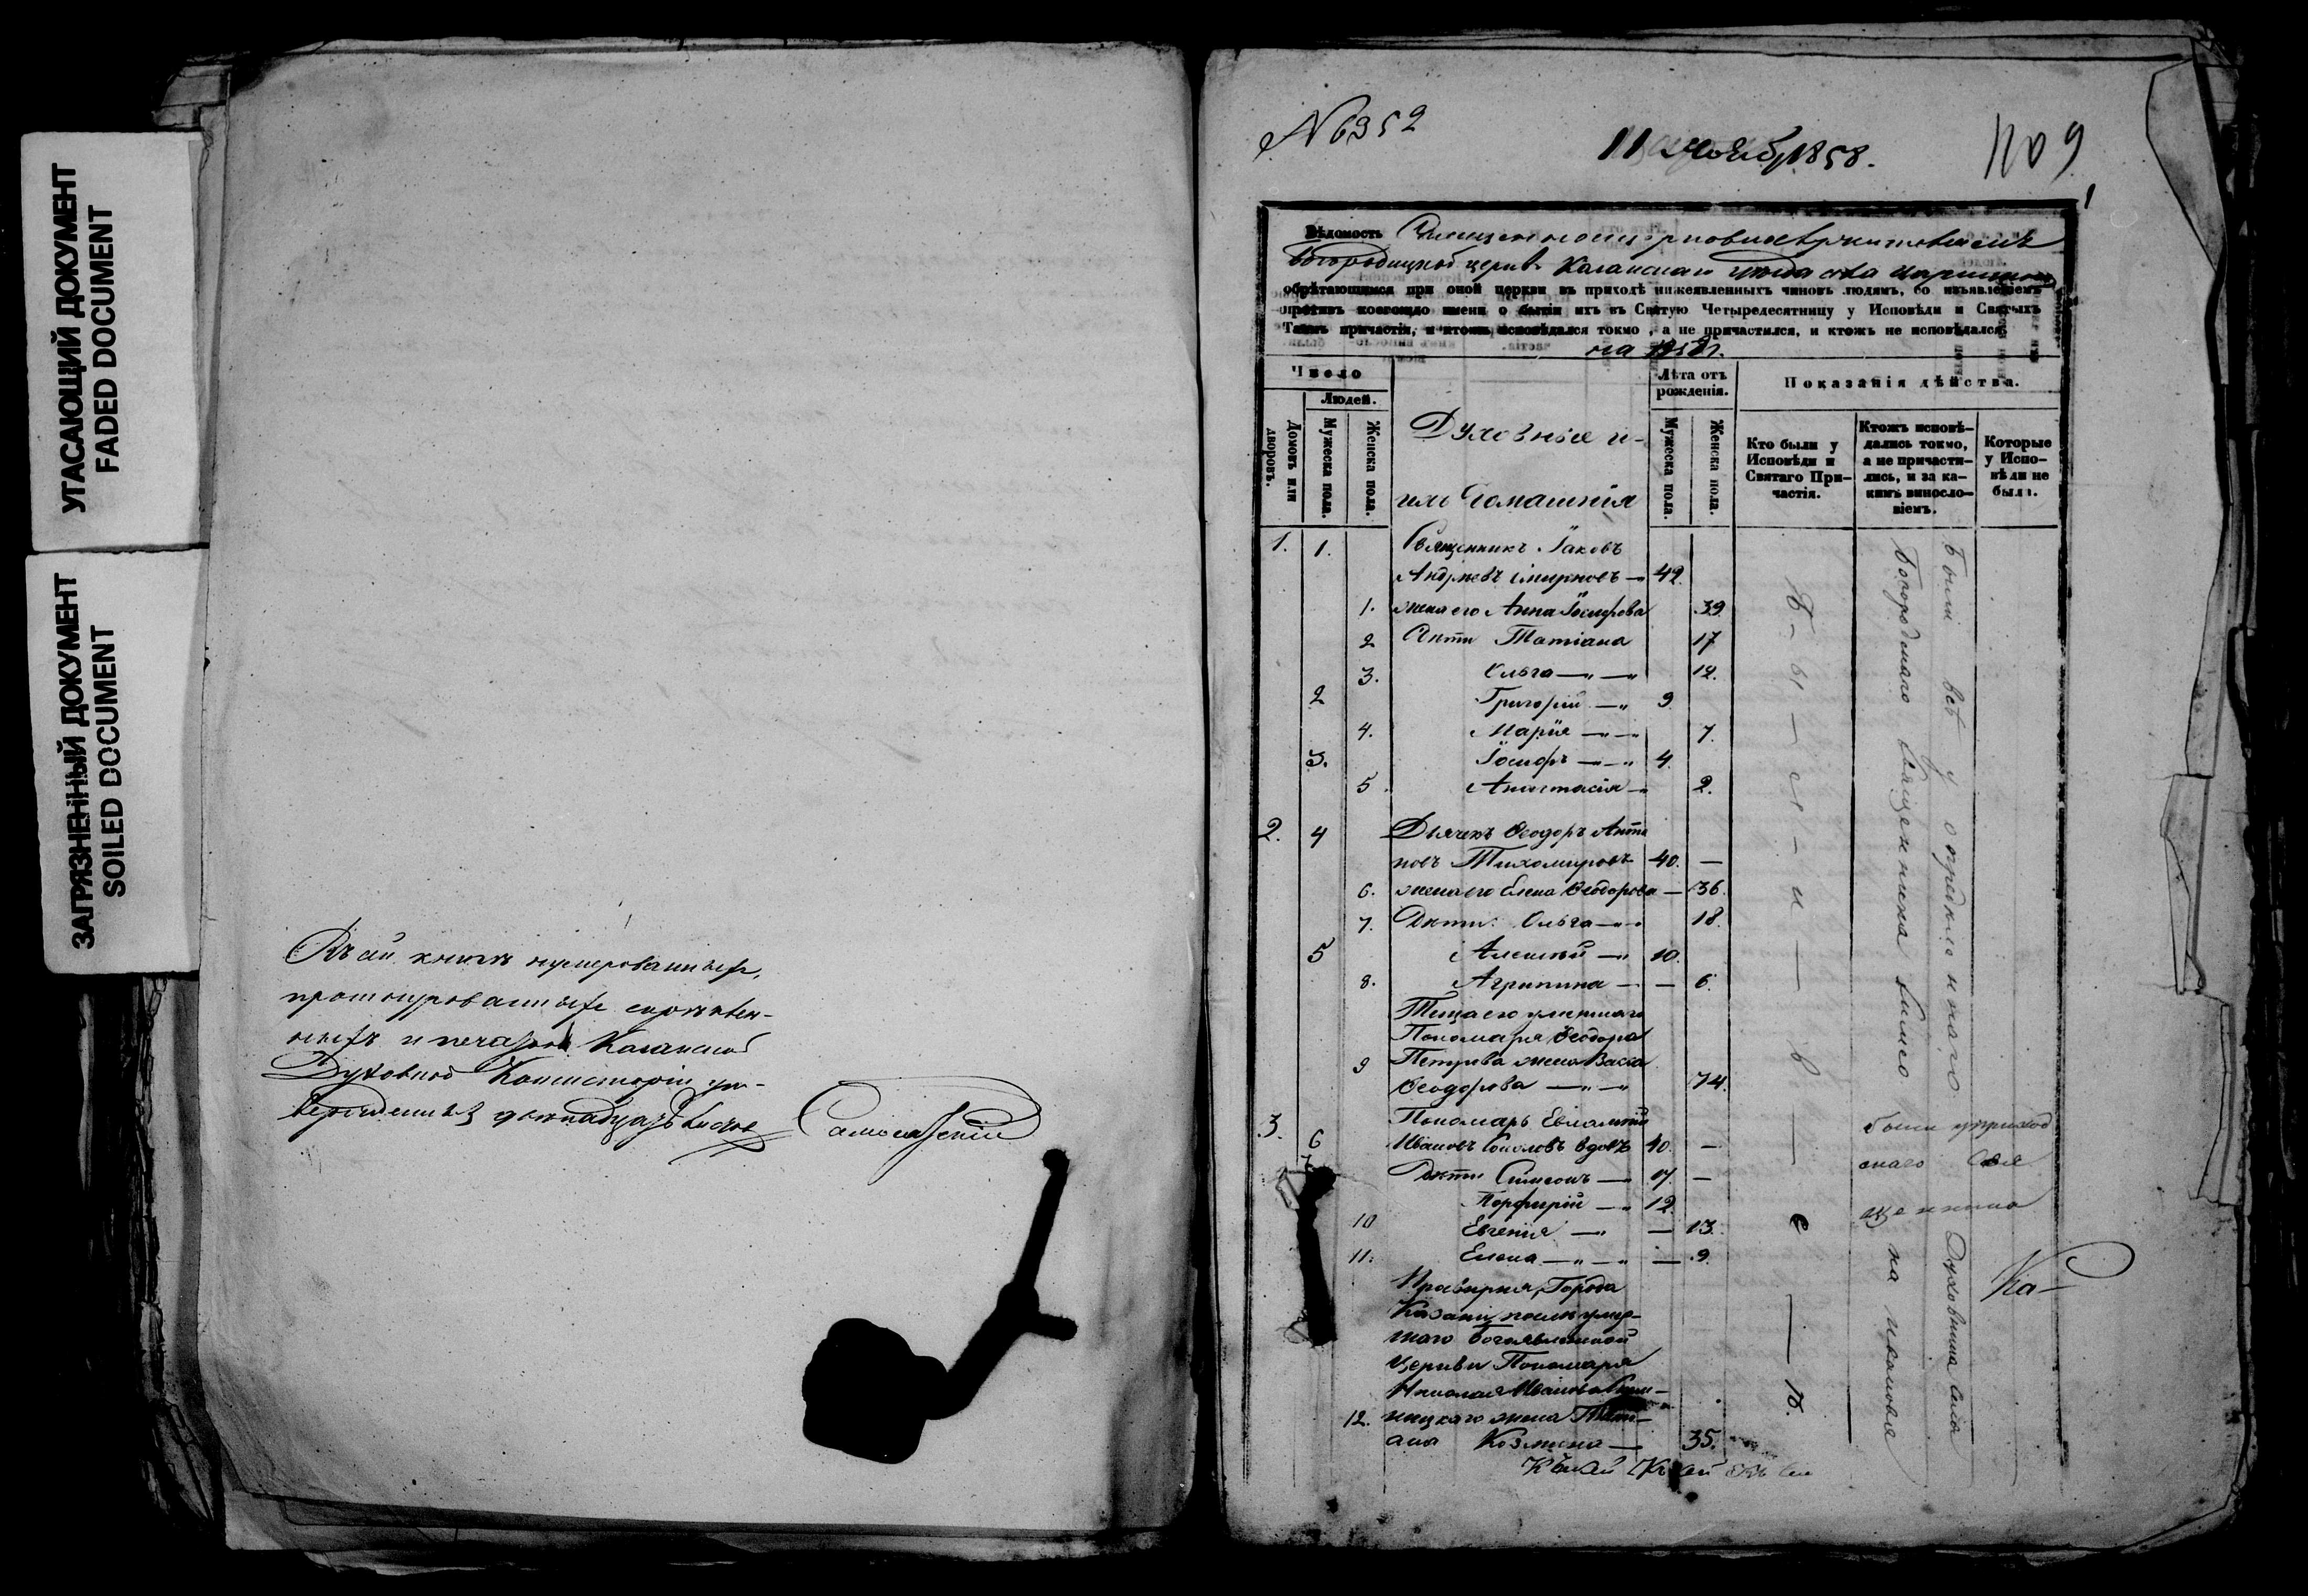 УГАСАЮЩИЙ ДОКУМЕНТ
FADED DOCUMENT
ЗАГРЯЗНЕННЫЙ ДОКУМЕНТ
SOILED DOCUMENT
Въ сей книгѣ нумерованныхъ,
прошнурованныхъ скрѣплен-
ныхъ и печатью Казанской
Духовной Консисторіи ут-
вержденныхъ листовъ
№ 6952
11 Ноябр 1858.
1
Вѣдомость
Богородицкой церкви Казанскаго уѣзда села
обрѣтающимся при оной церкви въ приходѣ нижеявленныхъ чиновъ людямъ, со изъявленіемъ
противъ коегождо имени о бытіи ихъ въ Святую Четыредесятницу у Исповѣди и Святыхъ
Таинъ причастія, и ктожъ исповѣдался токмо, а не причастился, и ктожъ не исповѣдался.
на 1858 г.
Число
Людей.
Домовъ или дворовъ.
Мужеска пола.
Женска пола.
Духовные и
ихъ домашнія
Лѣта отъ рожденія.
Мужеска пола.
Женска пола.
Показанія дѣйства.
Кто были у Исповѣди и Святаго При-
частія.
Ктожъ исповѣ-
дались токмо, а не причасти-
лись, и за ка-
кимъ винosло-
віемъ.
Которые у Испо-
вѣди не были.
1. 1. Священникъ Іаковъ
Андреевъ Смирновъ — 42.
1. жена его Анна Іосифова 39.
2 Дѣти Татіана 17
3. Ольга — " — " 12.
2 Григорій — " 9
4. Марія — " — " 7.
3. Іосифъ — " — " 4.
5 Анастасія — " 2.
2. 4 Дьячекъ Ѳеодоръ Анти
повъ Тихомировъ 40. —
6. жена его Елена Ѳеодорова — 36.
7. Дѣти: Ольга — " — " 18.
5 Алексѣй — " 10.
8. Агрипина — — 6.
Теща его умершаго
Пономаря Ѳеодора
9 Петрова жена Васса
Ѳеодорова — " — " 74.
3. Пономарь Евлампій
6 Ивановъ Соколовъ вдовъ 40. —
7 Дѣти Симеонъ — 17. —
Порфирій — " 12
10 Евгенія — " — 13.
11. Елена — " — " — 9.
Города
Казани умер-
шаго Богоявленской
церкви Пономаря
Николая Иванова
12. жена Тати-
ана Козмина — 35.
Б - ы - л - и - в - с - ѣ.
Были всѣ у опредѣленнаго
были у приход
скаго Свя
щенника
Духовника села
Ка-